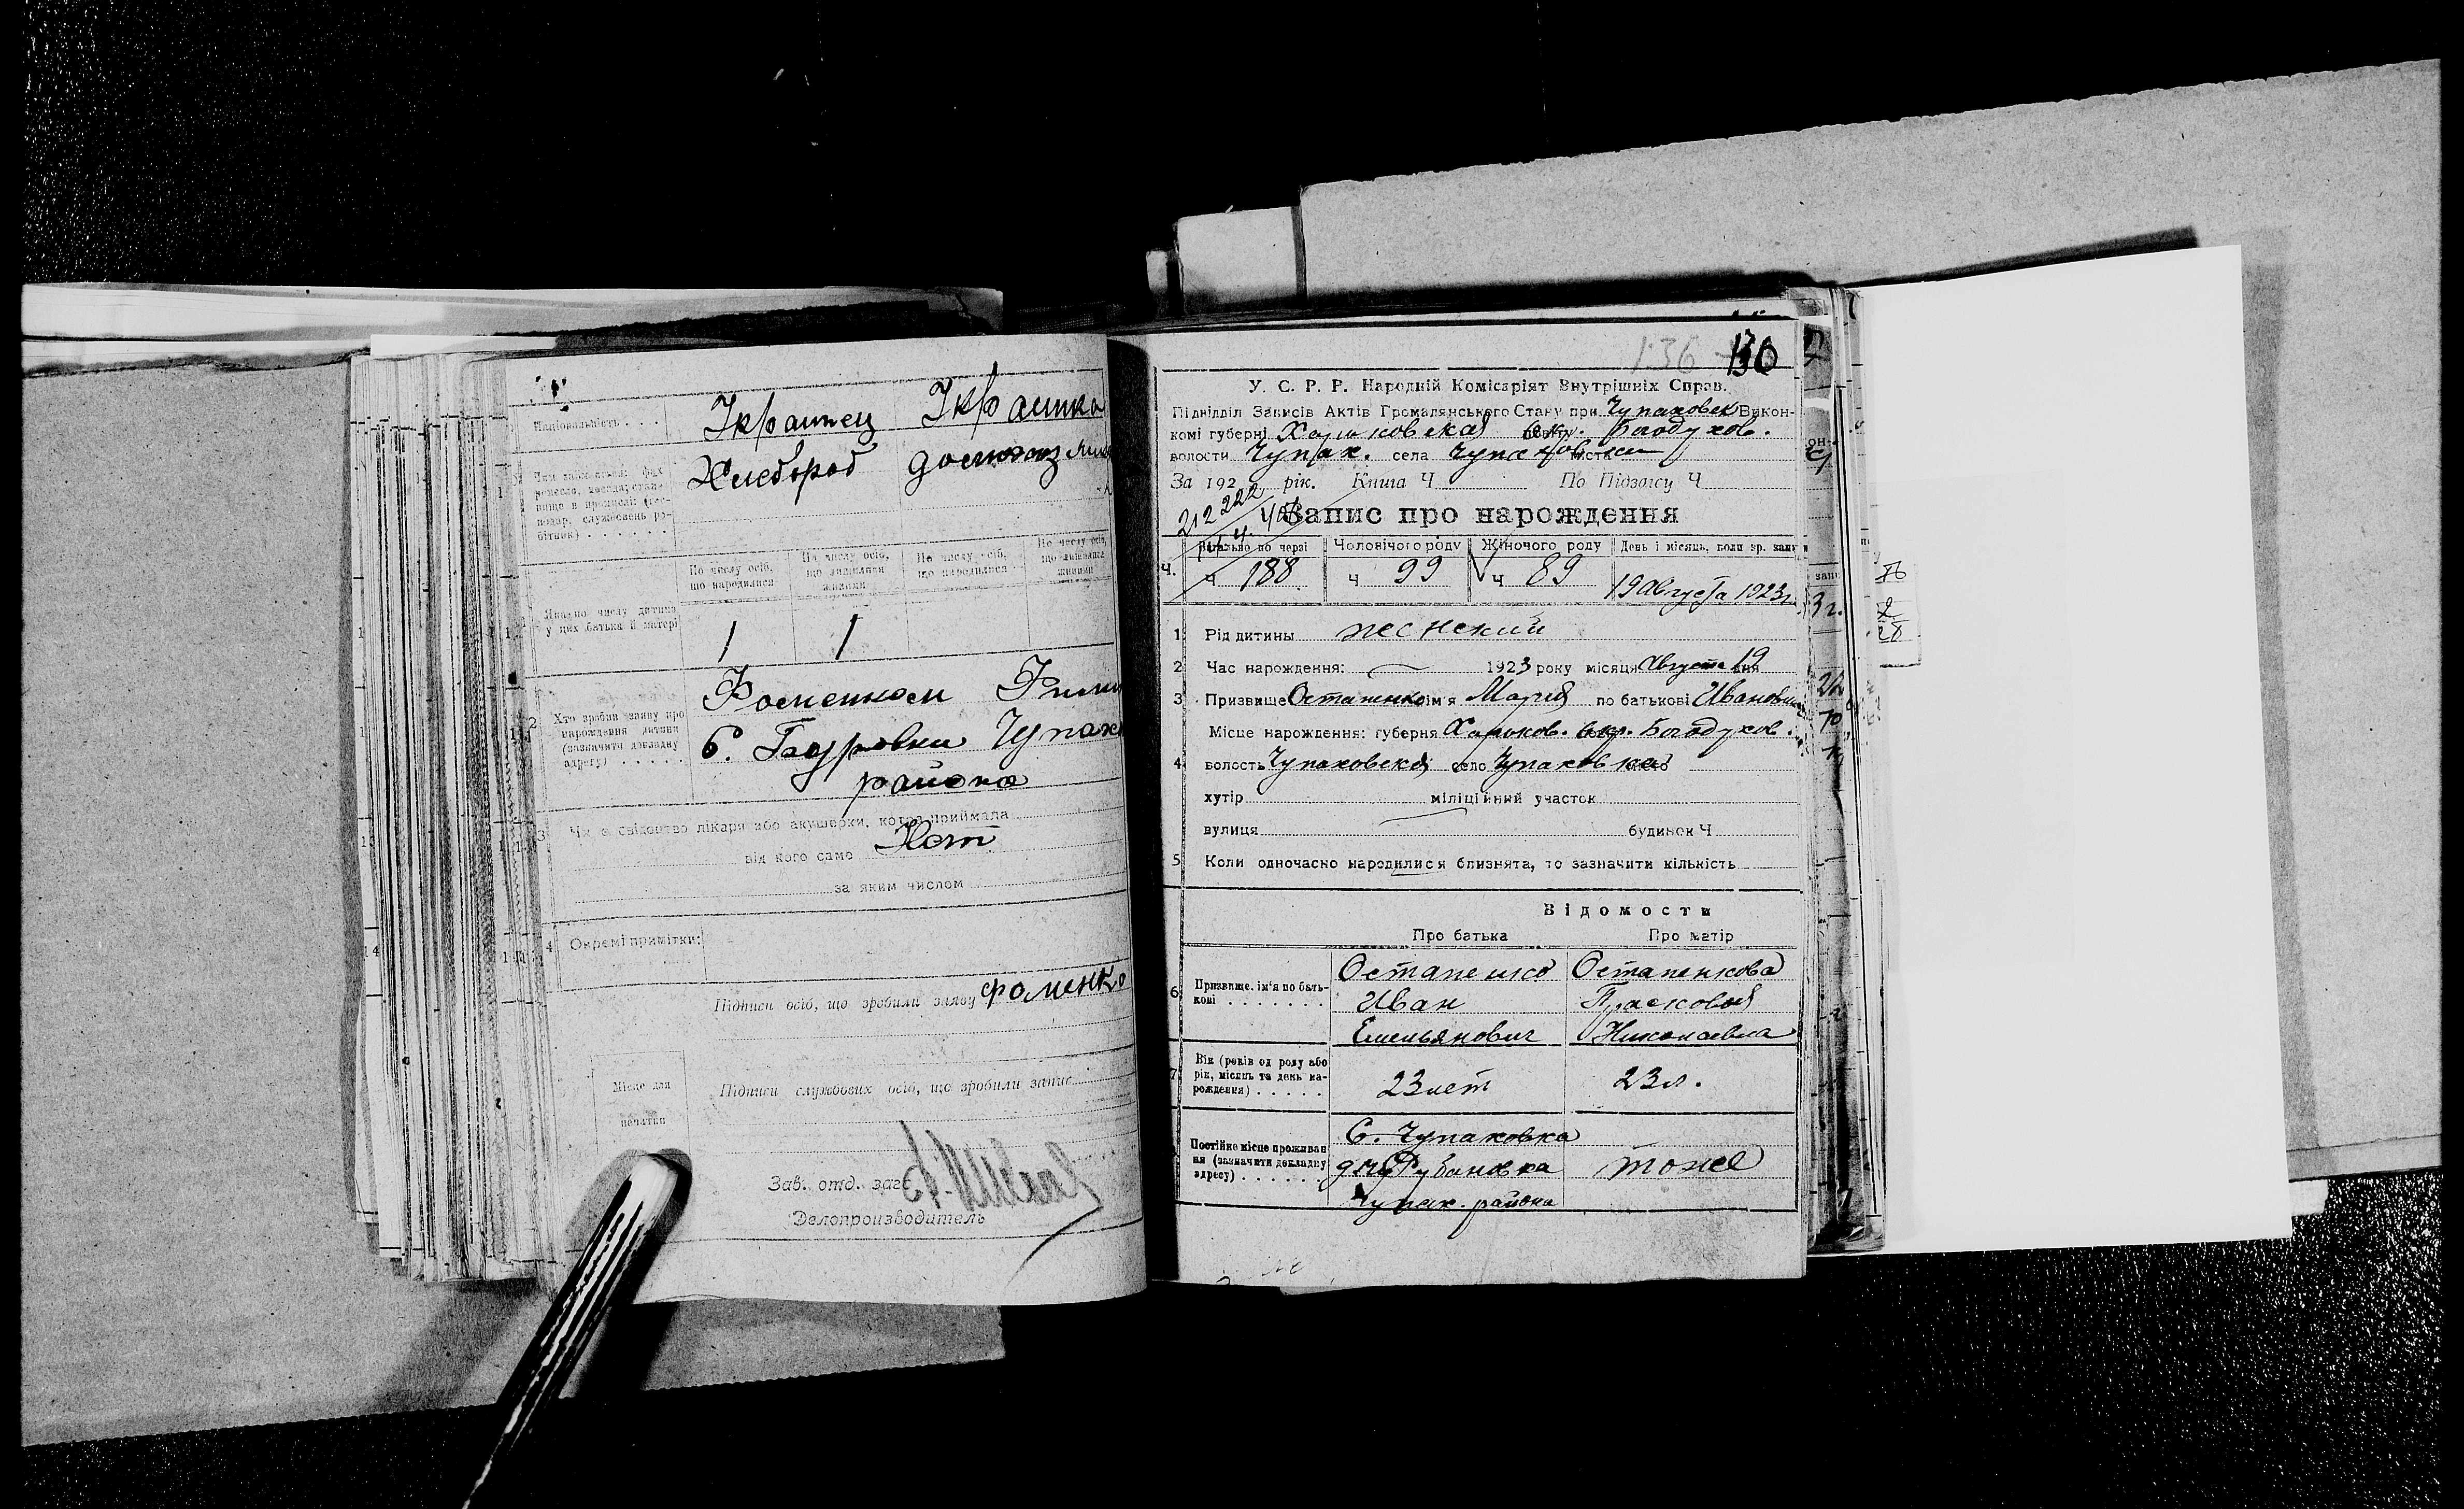 Національність . . .
Украинец
Украинка
Хлебороб
Домохоз
По числу осіб, що народилися
По числу осіб, що лишилися живими
По числу осіб, що народилися
По числу осіб, що лишилися живими
Яка по числу дитина у цих батька й матері
1
1
Хто зробив заяву про народження дитини (зазначити докладну адресу) . . . . .
Фоменком
с.
Чупах
района
Чи є свідоцтво лікаря або акушерки, котра приймала
від кого саме Нет
за яким числом
4 Окремі примітки:
Підписи осіб, що зробили заяву Фоменко
Місце для печатки
Підписи службових осіб, що зробили запис
Зав. отд. загс
Делопроизводитель
136
130
У. С. Р. Р. Народній Комісаріят Внутрішніх Справ.
Підвідділ Записів Актів Громадянського Стану при Чупаховск Викон-
комі губерні Харьковская окр. Богодухов.
волости Чупах. села Чупаховки
За 192 рік. Книга Ч По Підзапису Ч
212 222
Запис про нарождення
Загально по черзі
Чоловічого роду
Жіночого роду
День і місяць, коли зр. запис
ч 188
ч 99
ч 89
19 Августа 1923 г.
1 Рід дитины женский
2 Час нарождення: 1923 року місяця Августа 19 дня
3 Призвище Остапенко ім'я Мария по батькові Ивановна
Місце нарождення: губерня Харьков. окр. Богодухов.
4 волость Чупаховская село Чупаховка
хутір міліційний участок
вулиця будинок Ч
5 Коли одночасно народилися близнята, то зазначити кількість
Відомости
Про батька
Про матір
6 Призвище, ім'я по батькові . . . . . . .
Остапенко
Иван
Емельянович
Остапенкова
Прасковья
Николаевна
7 Вік (років од роду або рік, місяць та день нарождення) . . . . .
23 лет
23 л.
Постійне місце проживання (зазначити докладну адресу) . . . . . .
С. Чупаховка
Рубановка
Чупах. района
тоже